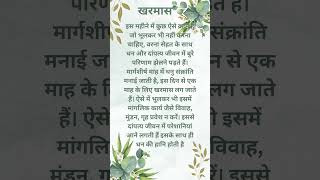 खरमास
इस महीने में कुछ ऐसे
जो भूलकर भी नहीं करना
चाहिए, वरना सेहत के साथ
धन और दांपत्य जीवन में बुरे
परिणाम झेलने पड़ते हैं।
मार्गशीर्ष माह में धनु संक्रांति
मनाई जाती है, इस दिन से एक
माह के लिए खरमास लग जाते
हैं। ऐसे में भूलकर भी इसमें
मांगलिक कार्य जैसे विवाह,
मुंडन, गृह प्रवेश न करें। इससे
दांपत्य जीवन में परेशानियां
आने लगती हैं इसके साथ ही
धन की हानि होती है